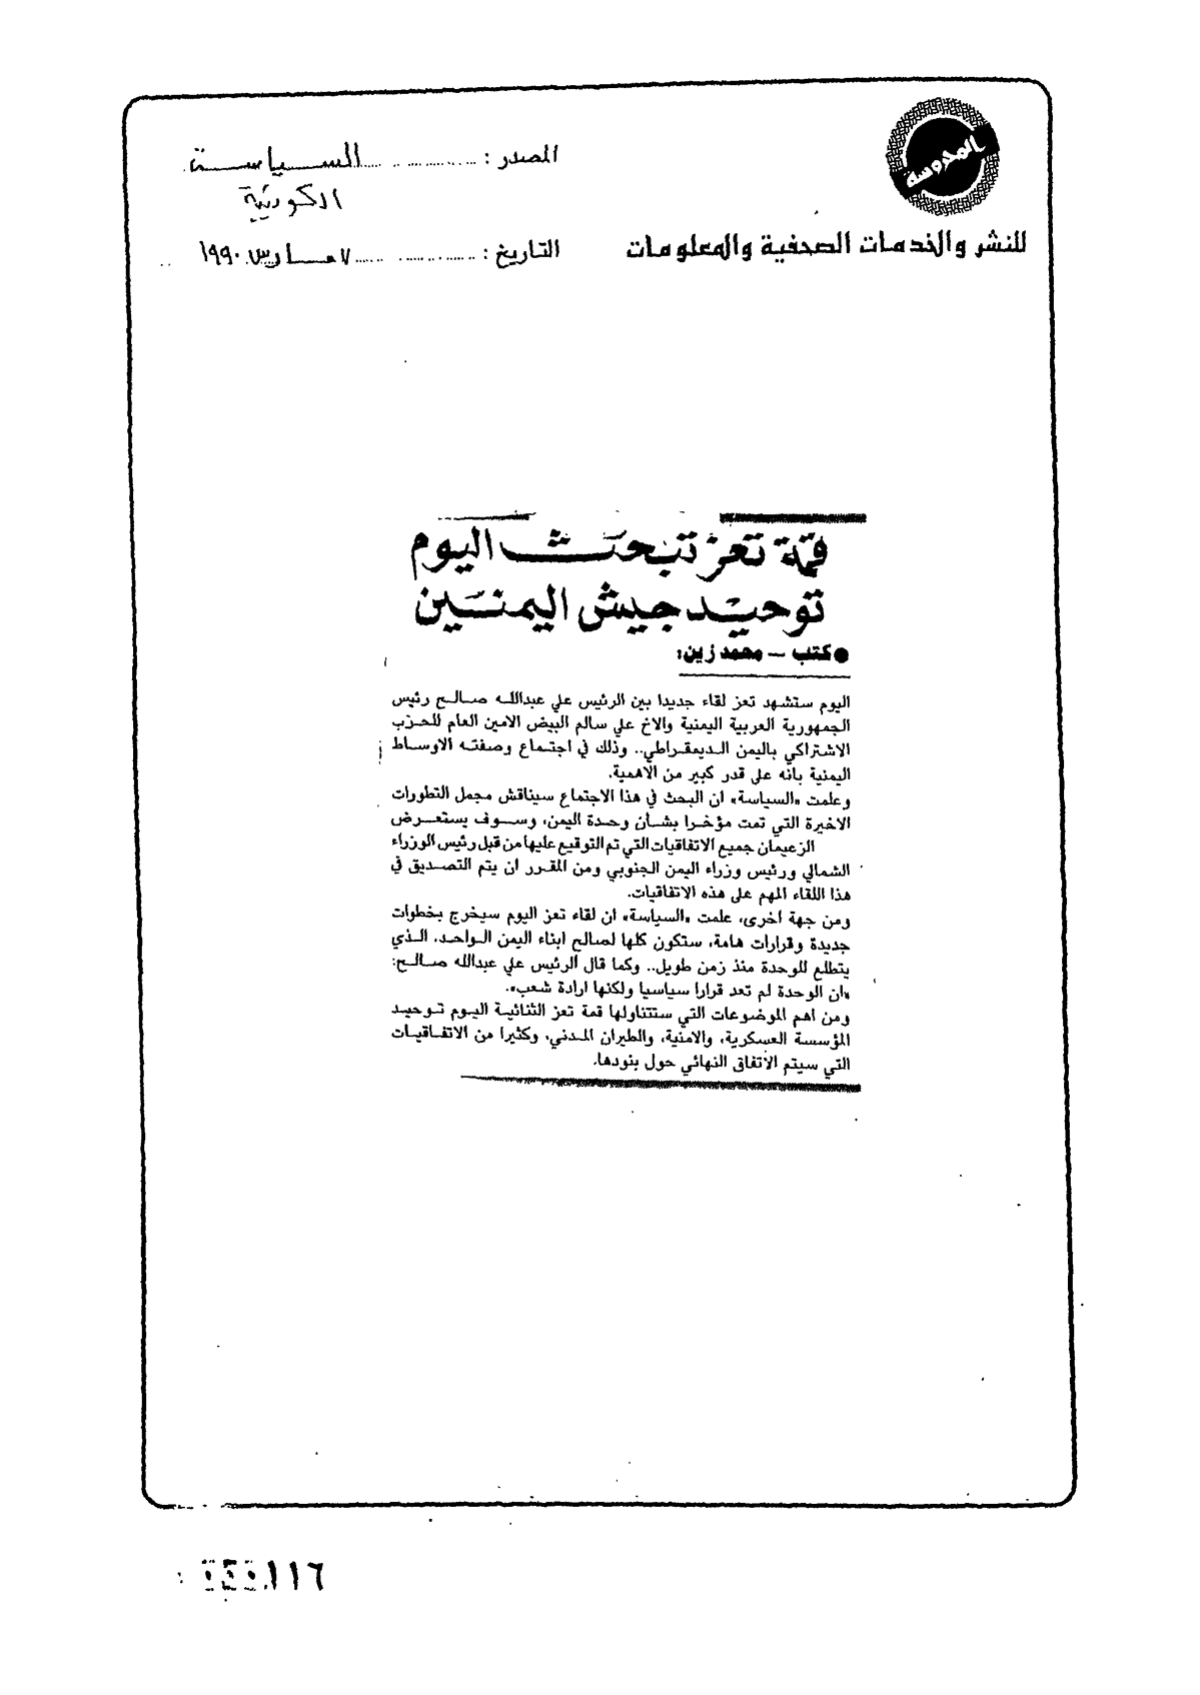 المحروسة
للنشر والخدمات الصحفية والمعلومات
المصدر : السياسة
الكويتية
التاريخ : ٧ مارس ١٩٩٠
قمة تعز تبحث اليوم
توحيد جيش اليمنين
● كتب – محمد زين:
اليوم ستشهد تعز لقاء جديدا بين الرئيس علي عبدالله صالح رئيس
الجمهورية العربية اليمنية والاخ علي سالم البيض الامين العام للحزب
الاشتراكي باليمن الديمقراطي.. وذلك في اجتماع وصفته الاوساط
اليمنية بانه على قدر كبير من الاهمية.
وعلمت «السياسة» ان البحث في هذا الاجتماع سيناقش مجمل التطورات
الاخيرة التي تمت مؤخرا بشان وحدة اليمن، وسوف يستعرض
الزعيمان جميع الاتفاقيات التي تم التوقيع عليها من قبل رئيس الوزراء
الشمالي ورئيس وزراء اليمن الجنوبي ومن المقرر ان يتم التصديق في
هذا اللقاء المهم على هذه الاتفاقيات.
ومن جهة اخرى، علمت «السياسة» ان لقاء تعز اليوم سيخرج بخطوات
جديدة وقرارات هامة، ستكون كلها لصالح ابناء اليمن الواحد. الذي
يتطلع للوحدة منذ زمن طويل.. وكما قال الرئيس علي عبدالله صالح:
«ان الوحدة لم تعد قرارا سياسيا ولكنها ارادة شعب».
ومن اهم الموضوعات التي ستتناولها قمة تعز الثنائية اليوم توحيد
المؤسسة العسكرية، والامنية، والطيران المدني، وكثيرا من الاتفاقيات
التي سيتم الاتفاق النهائي حول بنودها.
١١٦